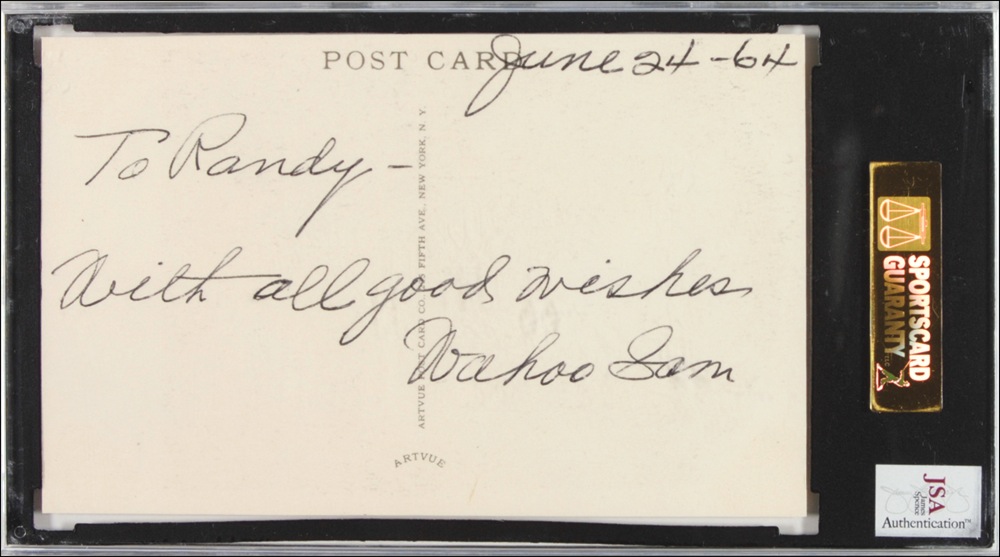 POST CARD
June 24-64
To Randy-
With all good wishes
Wahoo Sam
ARTVUE POST CARD CO., FIFTH AVE., NEW YORK, N. Y.
ARTVUE
SPORTSCARD
GUARANTY LLC
JSA
James
Spence
Authentication™